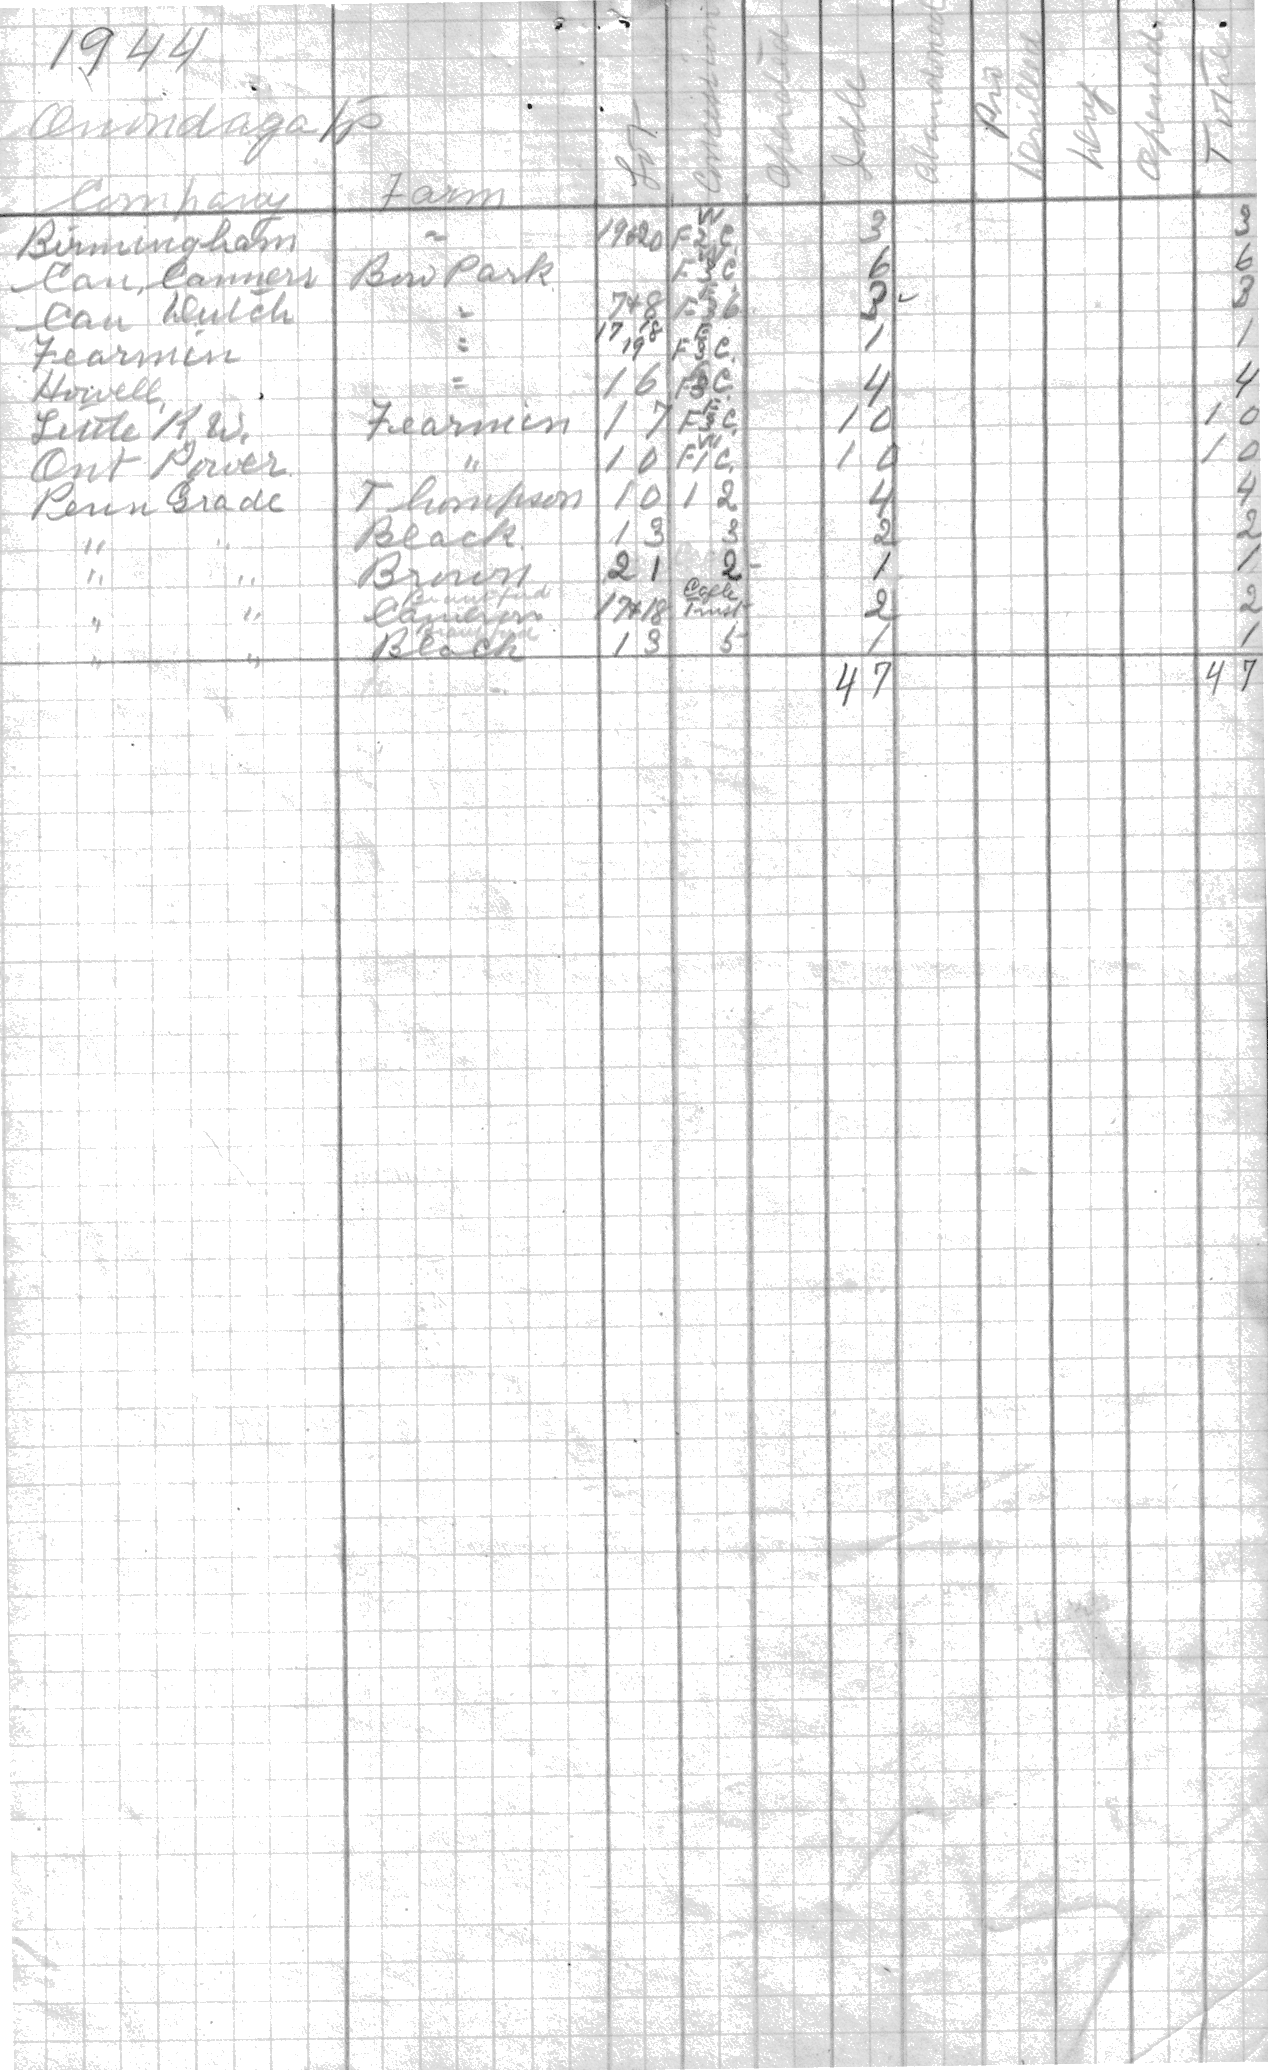 1944
Onondaga Tp
Company Farm Lot Concession Operated Idle Abandoned Pro Drilled Dry Opened Total
Birmingham " 19+20 F W 2 C. 3 3
Can. Canners Bow Park F W 3 C 6 6
Can Dutch " 7+8 F E 3 3 3
Fearmin " 17 18 19 F E 3 C. 1 1
Howell " 16 F E 3 C. 4 4
Little R W. Fearmin 17 F E 3 C. 10 10
Ont Power " 10 F W 1 C. 10 10
Penn Grade Thompson 10 1 2 4 4
" " Black 13 3 2 2
" " Brown 21 2 1 1
" " Brantford Cameron 17+18 Eagle 2 2
" " Brantford Black 13 5 1 1
47 47